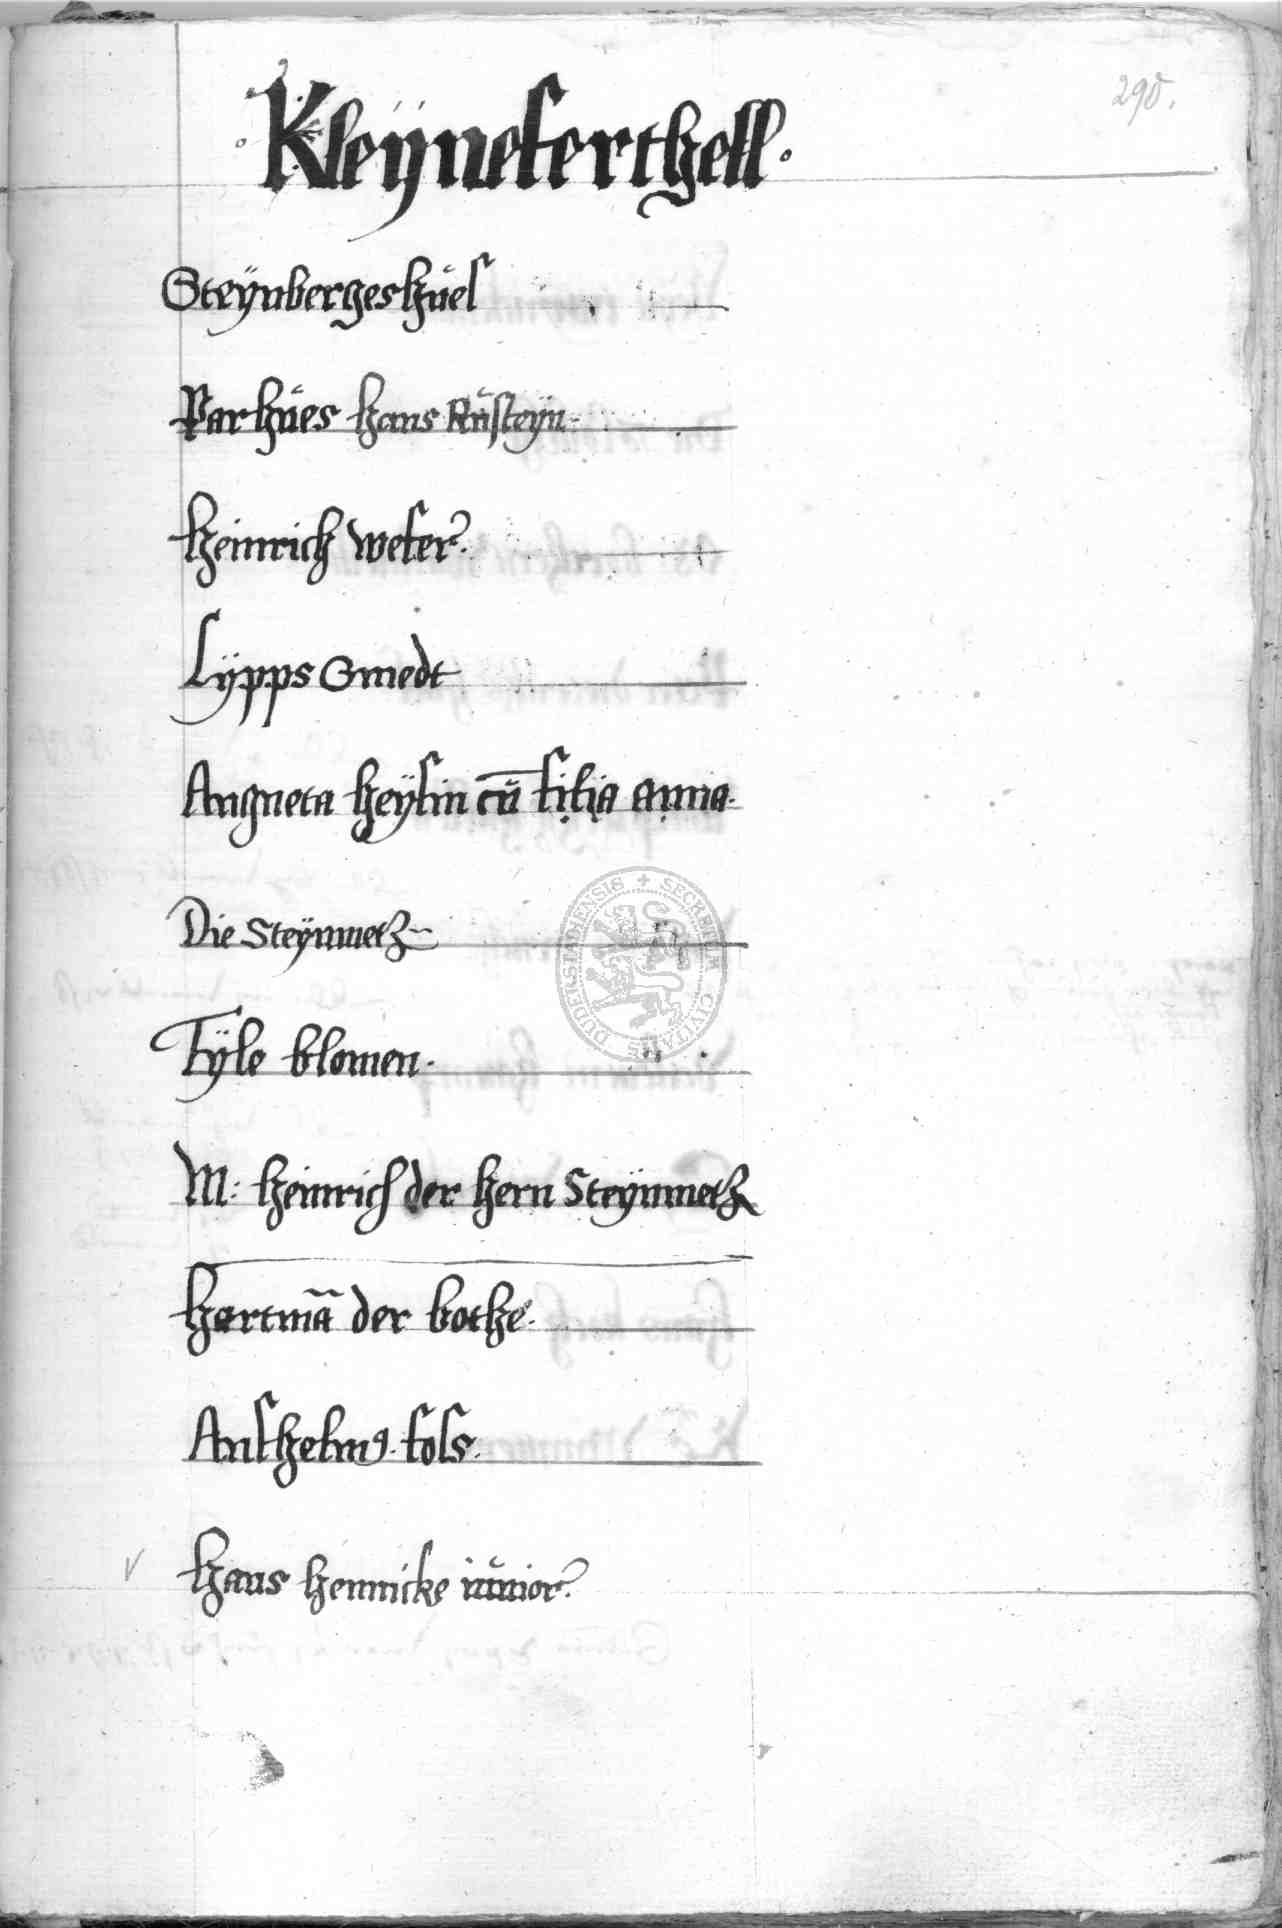 290.
Kleÿneferthell.
Steÿnbergeshuͤes
Parhuͤes hans Rusteÿn.
Heinrich weser.
Lÿpps Smedt
Angneta heÿsin cū filia anna.
Die Steÿnmetz
Tÿle blomen.
M: Heinrich der hern Steÿnmetz
Hartmā der bothe.
Anshelmꝯ fols.
Hans hennicke iunior.
DUDERSTADIENSIS + SECRETUM CIVITATIS